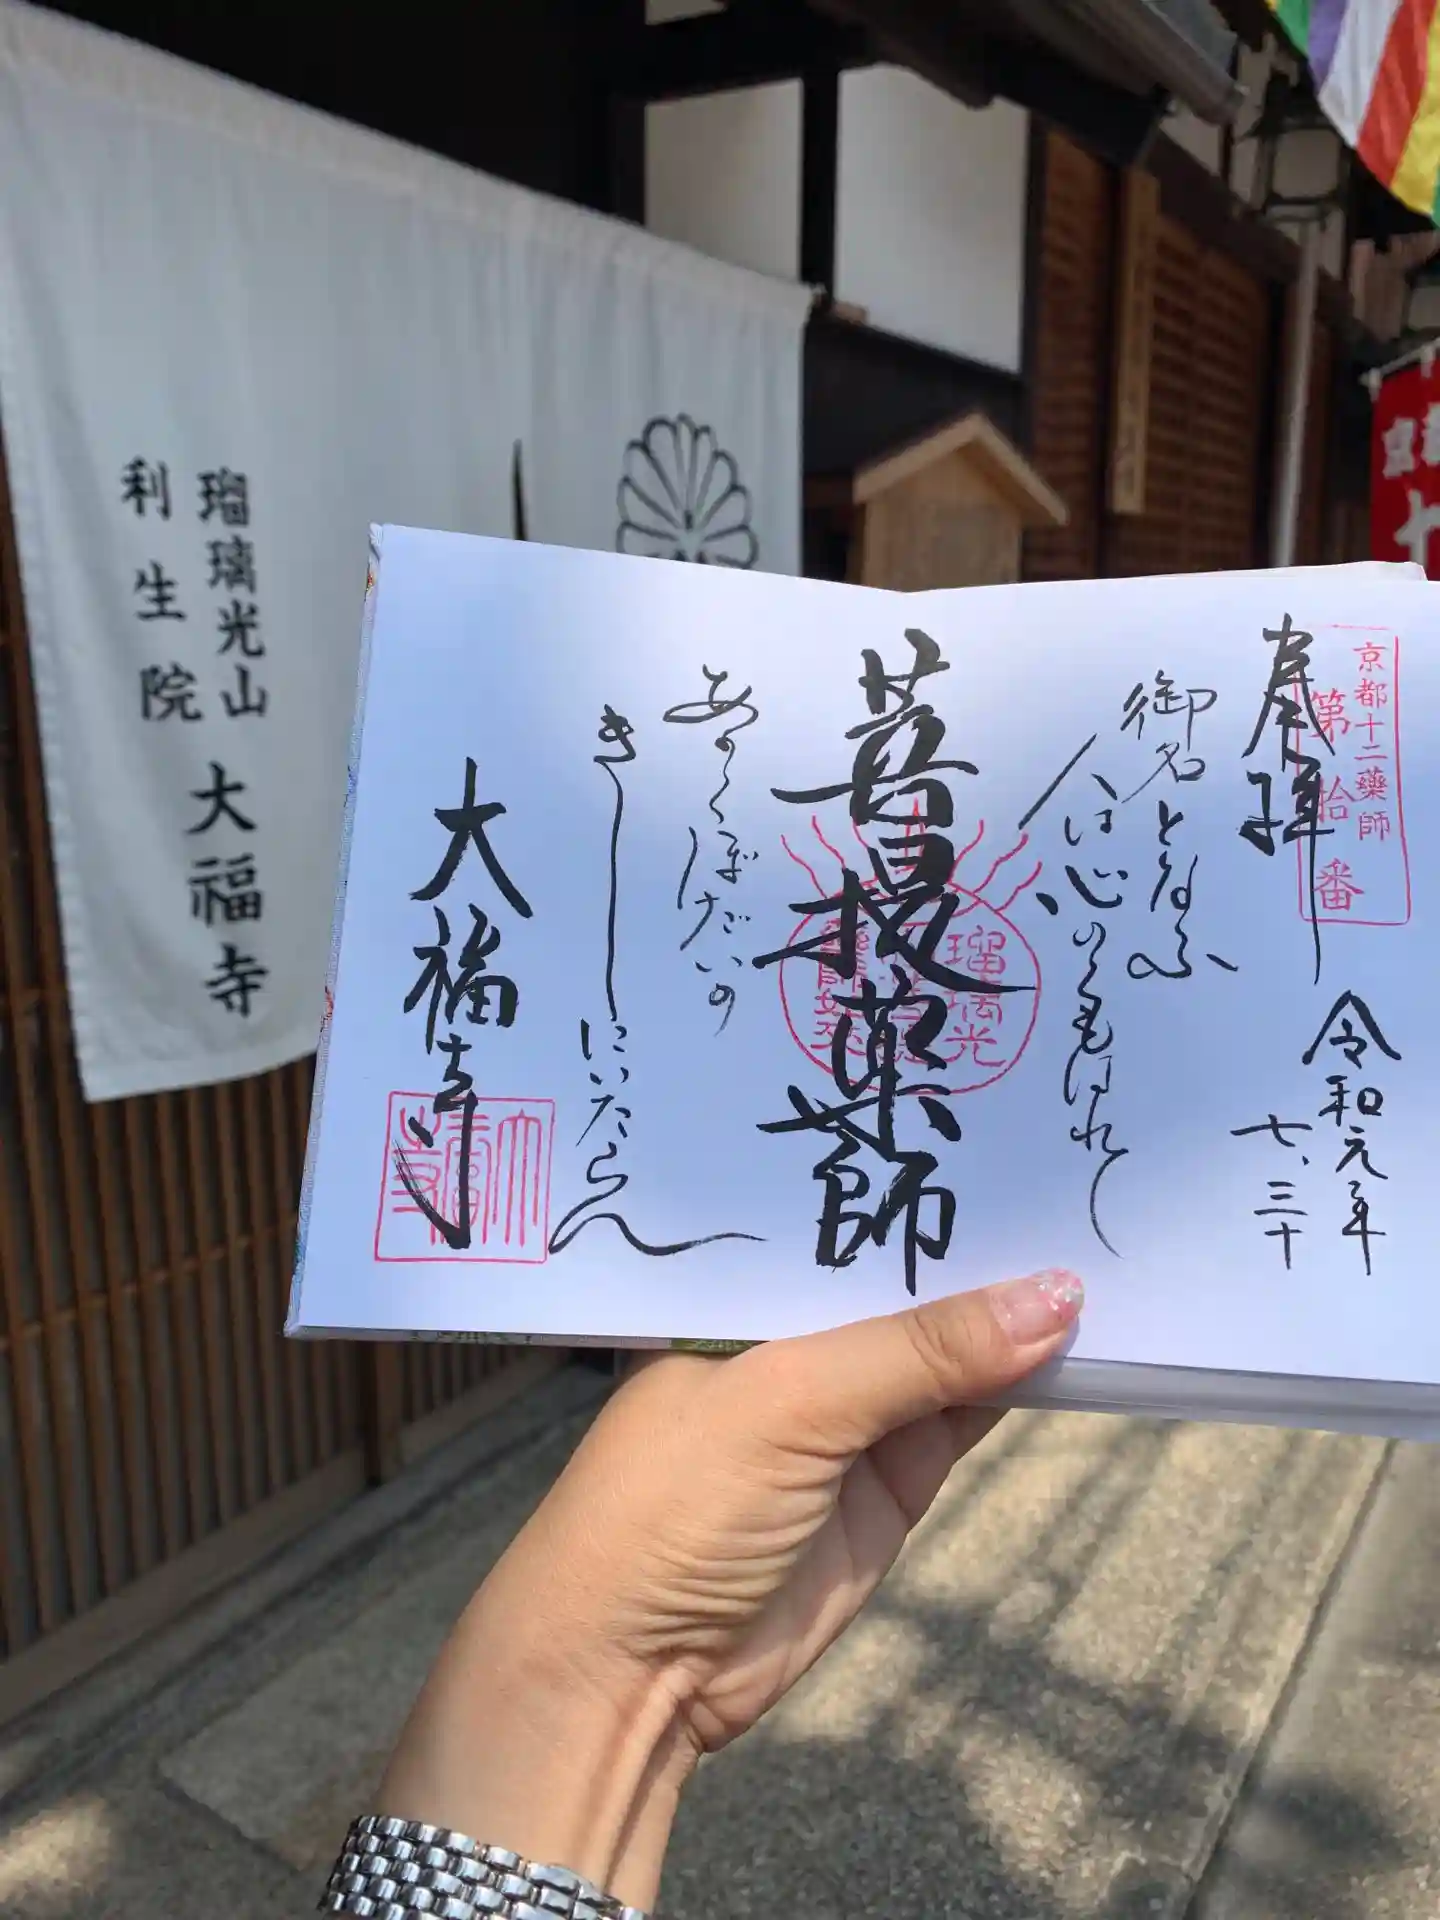 瑠璃光山
利生院
大福寺
京都十二薬師
第拾番
奉拝
令和元年
七、三十
御名となふ
人は心のくもはれて
菩提薬師
瑠璃光
あのくぼだいの
きしにいたらん
大福寺
大福寺